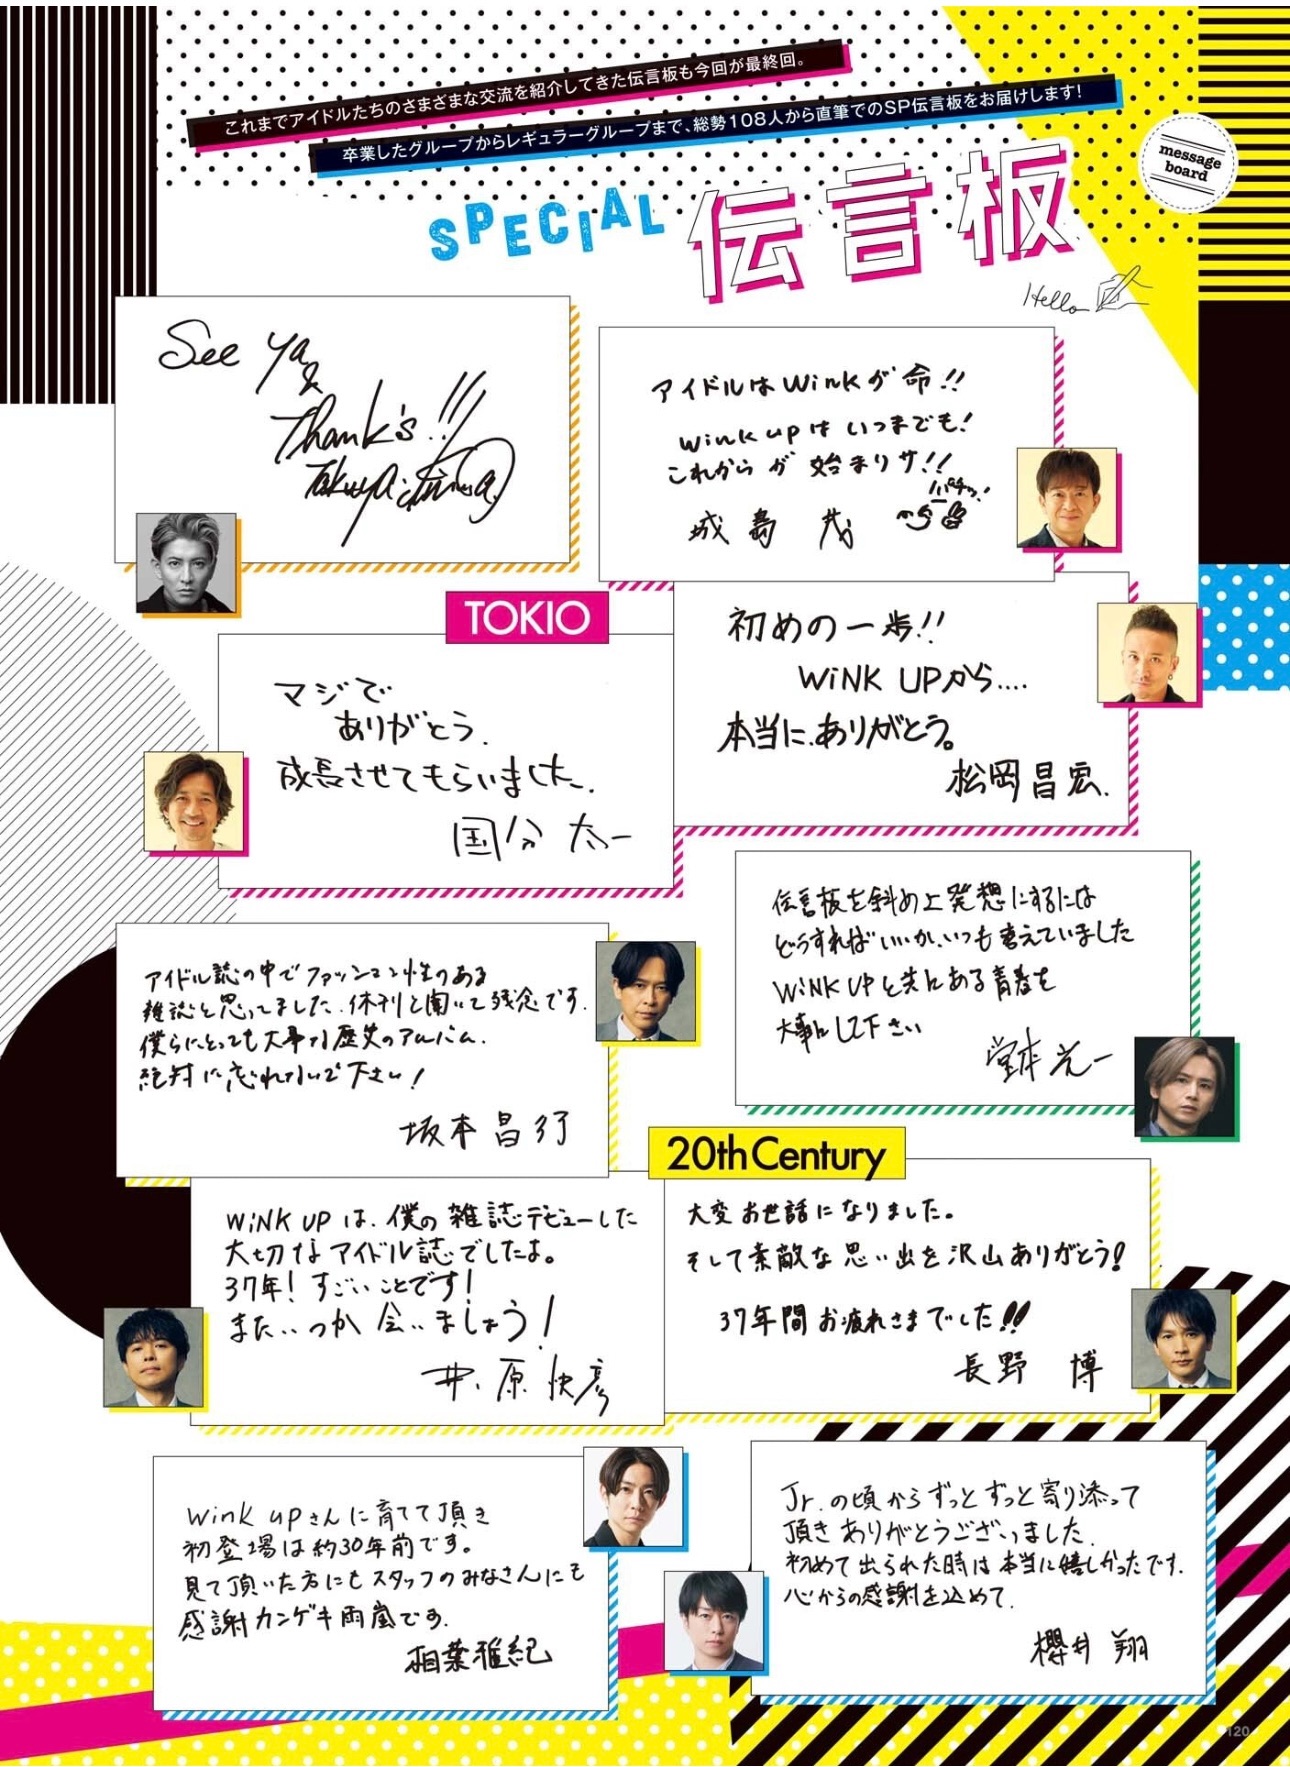 これまでアイドルたちのさまざまな交流を紹介してきた伝言板も今回が最終回。
卒業したグループからレギュラーグループまで、総勢108人から直筆でのSP伝言板をお届けします!
message
board
SPECIAL 伝言板
Hello
See ya
&
Thank's!!!
アイドルはWinkが命!!
Wink upはいつまでも!
これからが始まりサ!!
パチッ!
城島 茂
TOKIO
初めの一歩!!
WiNK UPから....
本当に、ありがとう。
松岡昌宏.
マジで
ありがとう.
成長させてもらいました.
国分太一
伝言板を斜め上発想にするには
どうすればいいか、いつも考えていました
WiNK UPと共にある青春を
大事にして下さい
堂本光一
アイドル誌の中でファッション性のある
雑誌と思ってました.休刊と聞いて残念です.
僕らにとっても大事な歴史のアルバム.
絶対に忘れないで下さい!
坂本昌行
20th Century
WiNK UPは、僕の雑誌デビューした
大切なアイドル誌でしたよ。
37年!すごいことです!
またいつか会いましょう!
井ノ原快彦
大変お世話になりました。
そして素敵な思い出を沢山ありがとう!
37年間お疲れさまでした!!
長野 博
Wink upさんに育てて頂き
初登場は約30年前です。
見て頂いた方にもスタッフのみなさんにも
感謝カンゲキ雨嵐です.
相葉雅紀
Jr.の頃からずっとずっと寄り添って
頂きありがとうございました.
初めて出られた時は本当に嬉しかったです.
心からの感謝を込めて.
櫻井 翔
120